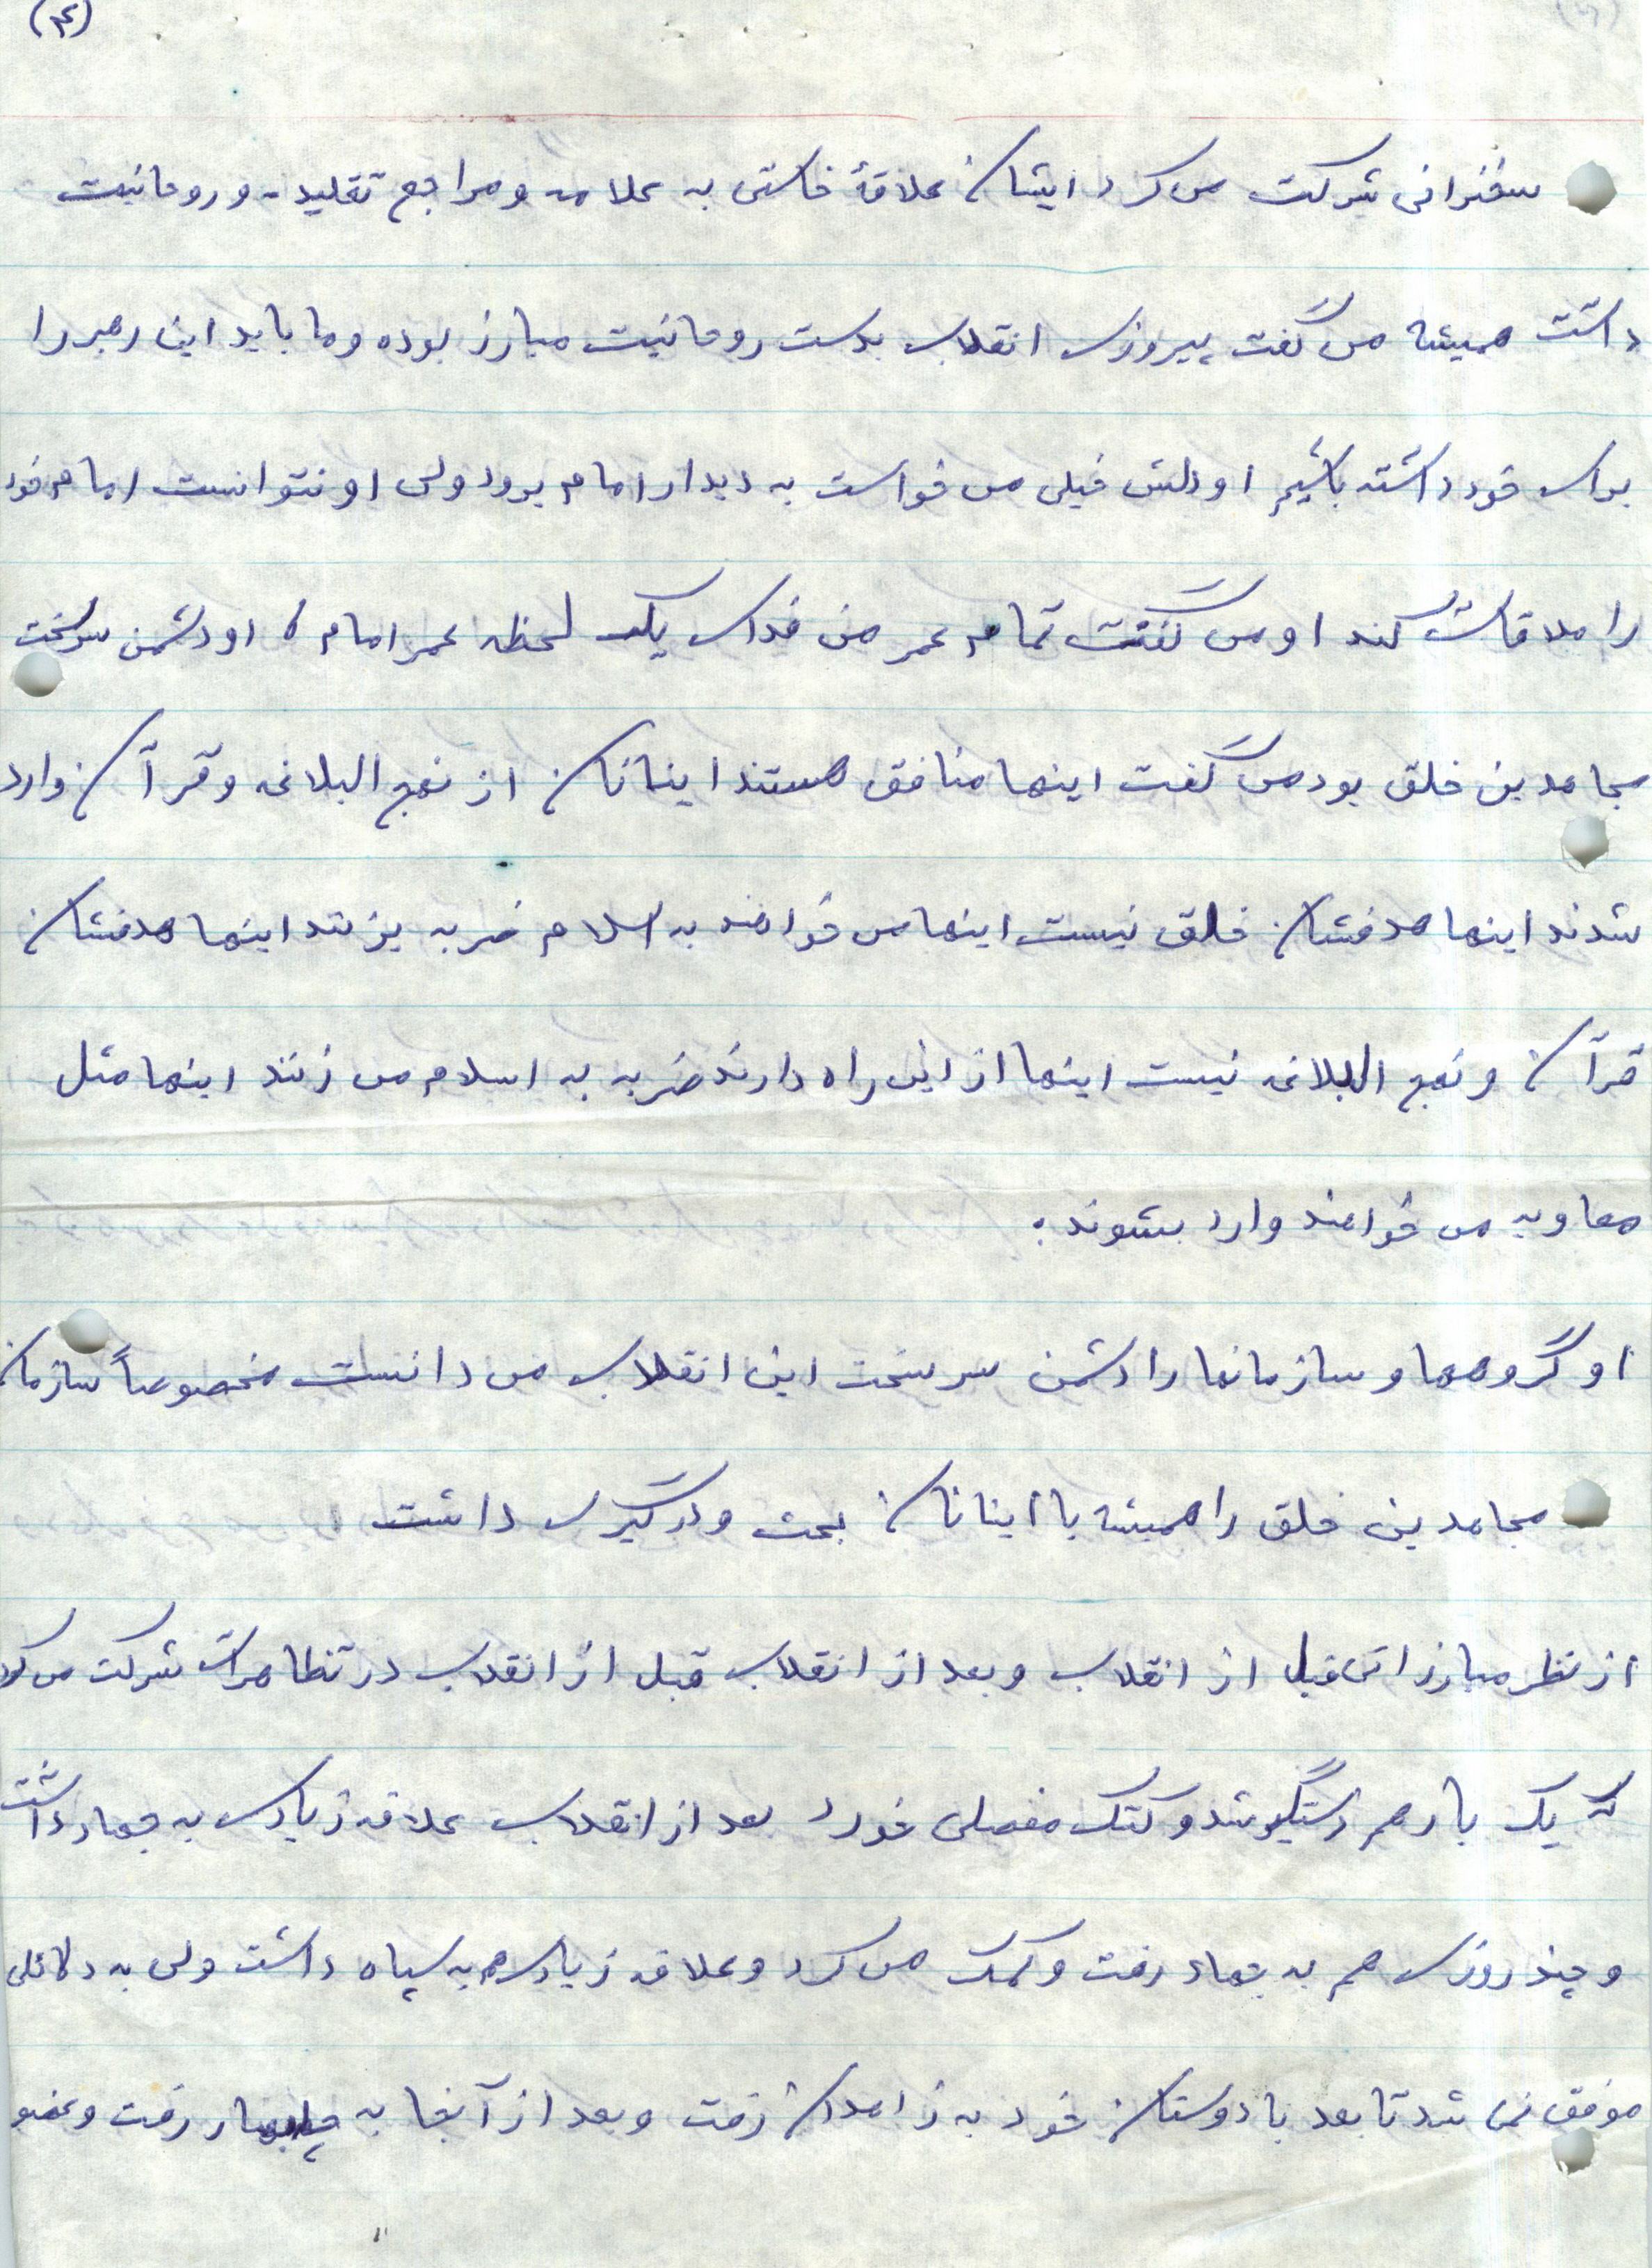 (۳)
سخنرانی شرکت می کرد ایشان علاقهٔ خاصی به علامه و مراجع تقلید - و روحانیت
داشت همیشه می گفت پیروزی انقلاب بدست روحانیت مبارز بوده و ما باید این رهبر را
برای خود داشته باشیم او دلش خیلی می خواست به دیدار امام برود ولی او نتوانست امام خود
را ملاقات کند او می گفت تمام عمر من فدای یک لحظه عمر امام ، او دشمن سرسخت
مجاهدین خلق بود می گفت اینها منافق هستند اینانان از نهج البلاغه و قرآن وارد
شدند اینها هدفشان خلق نیست اینها می خواهند به اسلام ضربه بزنند اینها هدفشان
قرآن و نهج البلاغه نیست اینها از این راه دارند ضربه به اسلام می زنند اینها مثل
معاویه می خواهند وارد بشوند.
او گروهها و سازمانها را دشمن سرسخت این انقلاب می دانست مخصوصاً سازمان
مجاهدین خلق را همیشه با اینانان بحث و درگیری داشت
از نظر مبارزاتی قبل از انقلاب و بعد از انقلاب قبل از انقلاب در تظاهرات شرکت می کرد
که یک بار هم دستگیر شد و کتک مفصلی خورد بعد از انقلاب علاقه زیادی به جهاد داشت
و چند روزی هم به جهاد رفت و کمک می کرد و علاقه زیادی هم به سپاه داشت ولی به دلائلی
موفق نمی شد تا بعد با دوستان خود به زاهدان رفت و بعد از آنجا به چابهار رفت و عضو